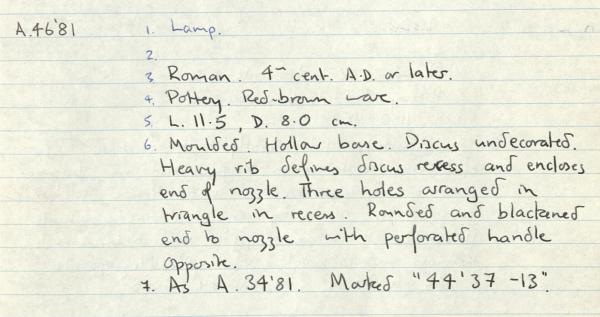 A.46'81 1. Lamp.
2.
3 Roman. 4th cent. A.D. or later.
4. Pottery. Red-brown ware.
5 L. 11.5, D. 8.0 cm.
6. Moulded. Hollow base. Discus undecorated.
Heavy rib defines discus recess and encloses
end of nozzle. Three holes arranged in
triangle in recess. Rounded and blackened
end to nozzle with perforated handle
opposite.
7. As A.34'81. Marked "44'37-13".